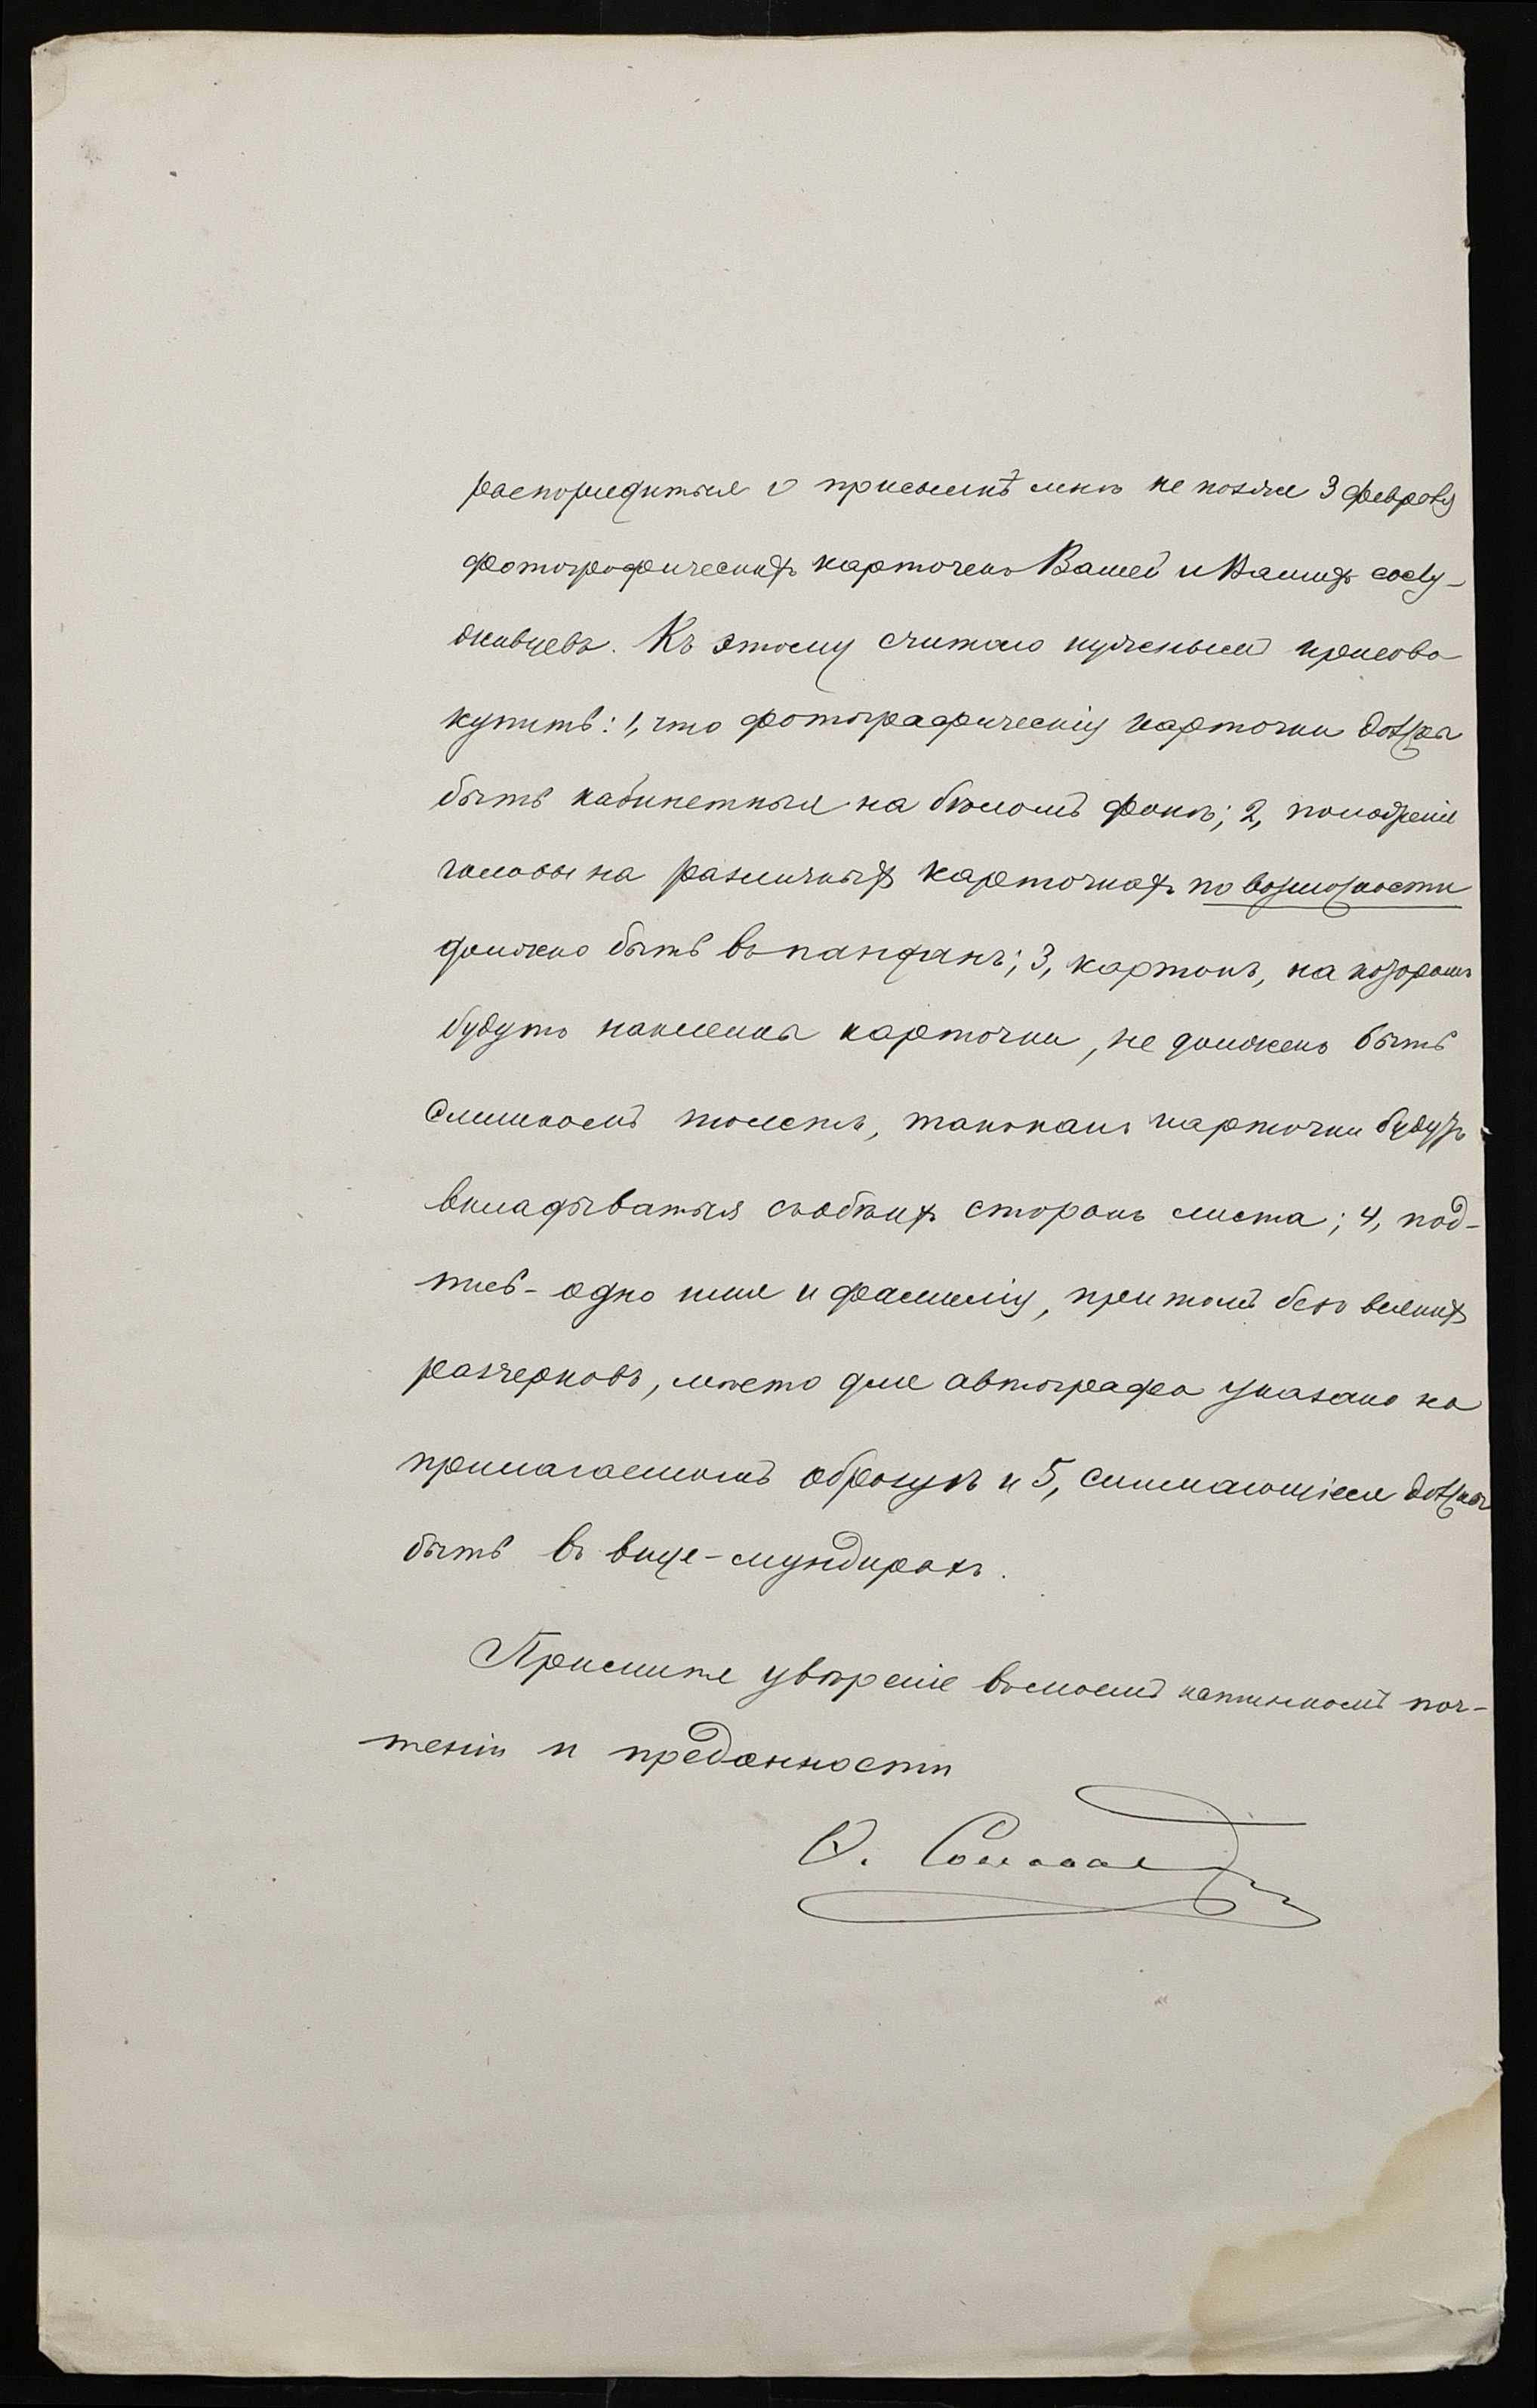 распорядиться о присылкѣ мнѣ не позже 3 февраля
фотографическихъ карточекъ Вашей и Вашихъ сослу-
живцевъ. Къ этому считаю нужнымъ присово
купить: 1, что фотографическія карточки должны
быть кабинетныя на бѣломъ фонѣ; 2, положеніе
головы на различныхъ карточкахъ по возможности
должно быть въ панданъ; 3, картонъ, на которомъ
будутъ наклеены карточки, не долженъ быть
слишкомъ толстъ, такъ какъ карточки будутъ
вкладываться съ обѣихъ сторонъ листа; 4, под-
пись - одно имя и фамилія, притомъ безъ всякихъ
разчерковъ, мѣсто для автографа указано на
прилагаемомъ образцѣ и 5, снимающіеся должны
быть въ вице-мундирахъ.
Примите увѣреніе въ моемъ истинномъ поч-
теніи и преданности